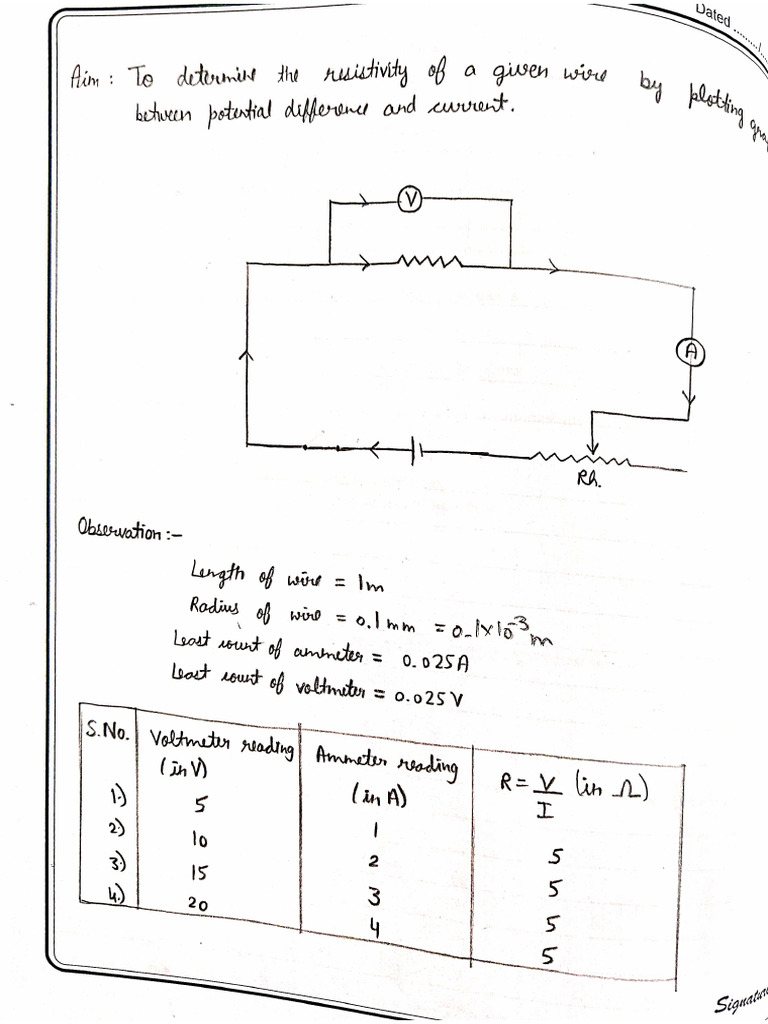 Dated
Aim : To determine the resistivity of a given wire by plotting
between potential difference and current.
V
A
Rh.
Observation :-
Length of wire = 1m
Radius of wire = 0.1mm = 0.1×10⁻³ m
Least count of ammeter = 0.025A
Least count of voltmeter = 0.025V
S.No. Voltmeter reading (in V) Ammeter reading (in A) R = V/I (in Ω)
1.) 5 1 5
2.) 10 2 5
3.) 15 3 5
4.) 20 4 5